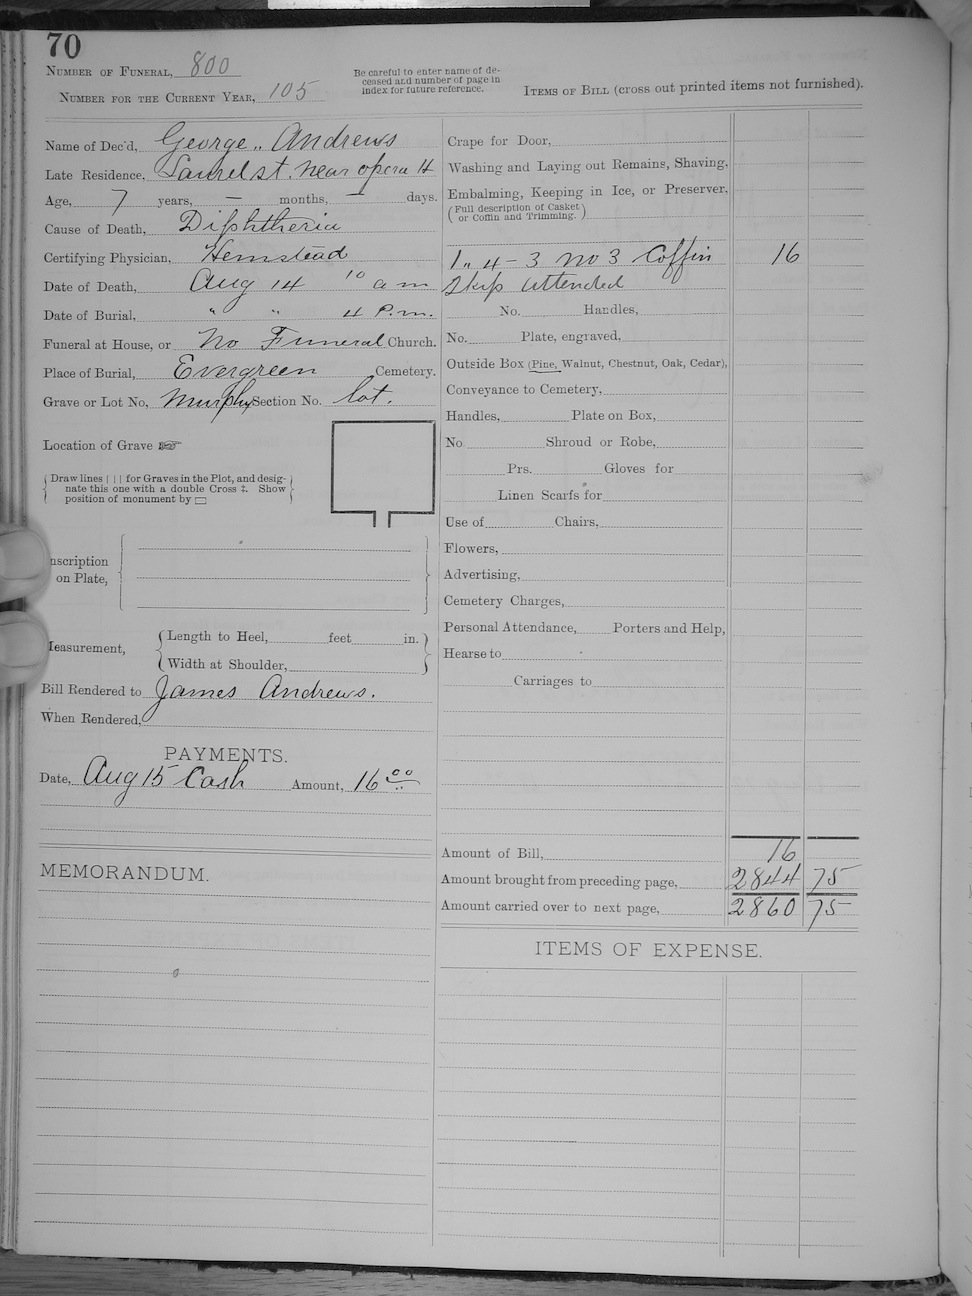 70
NUMBER OF FUNERAL, 800
NUMBER FOR THE CURRENT YEAR, 105
Be careful to enter name of de-
ceased and number of page in
index for future reference.
ITEMS OF BILL (cross out printed items not furnished).
Name of Dec'd, George,, Andrews
Late Residence, Laurel st. near opera H
Age, 7 years, — months, — days.
Cause of Death, Diphtheria
Certifying Physician, Hemstead
Date of Death, Aug 14 10 a m
Date of Burial, " " 4 P.m.
Funeral at House, or No Funeral Church.
Place of Burial, Evergreen Cemetery.
Grave or Lot No, Murphy Section No. lot.
Location of Grave ☞
Draw lines | | | for Graves in the Plot, and desig-
nate this one with a double Cross ‡. Show
position of monument by ▭
nscription
on Plate,
Measurement,
Length to Heel, feet in.
Width at Shoulder,
Bill Rendered to James Andrews.
When Rendered,
PAYMENTS.
Date, Aug 15 Cash Amount, 16 00
MEMORANDUM.
Crape for Door,
Washing and Laying out Remains, Shaving,
Embalming, Keeping in Ice, or Preserver,
(Full description of Casket
or Coffin and Trimming.)
1,, 4-3 no 3 Coffin 16
attended
No. Handles,
No. Plate, engraved,
Outside Box (Pine, Walnut, Chestnut, Oak, Cedar),
Conveyance to Cemetery,
Handles, Plate on Box,
No. Shroud or Robe,
Prs. Gloves for
Linen Scarfs for
Use of Chairs,
Flowers,
Advertising,
Cemetery Charges,
Personal Attendance, Porters and Help,
Hearse to
Carriages to
Amount of Bill, 16
Amount brought from preceding page, 2844 75
Amount carried over to next page, 2860 75
ITEMS OF EXPENSE.